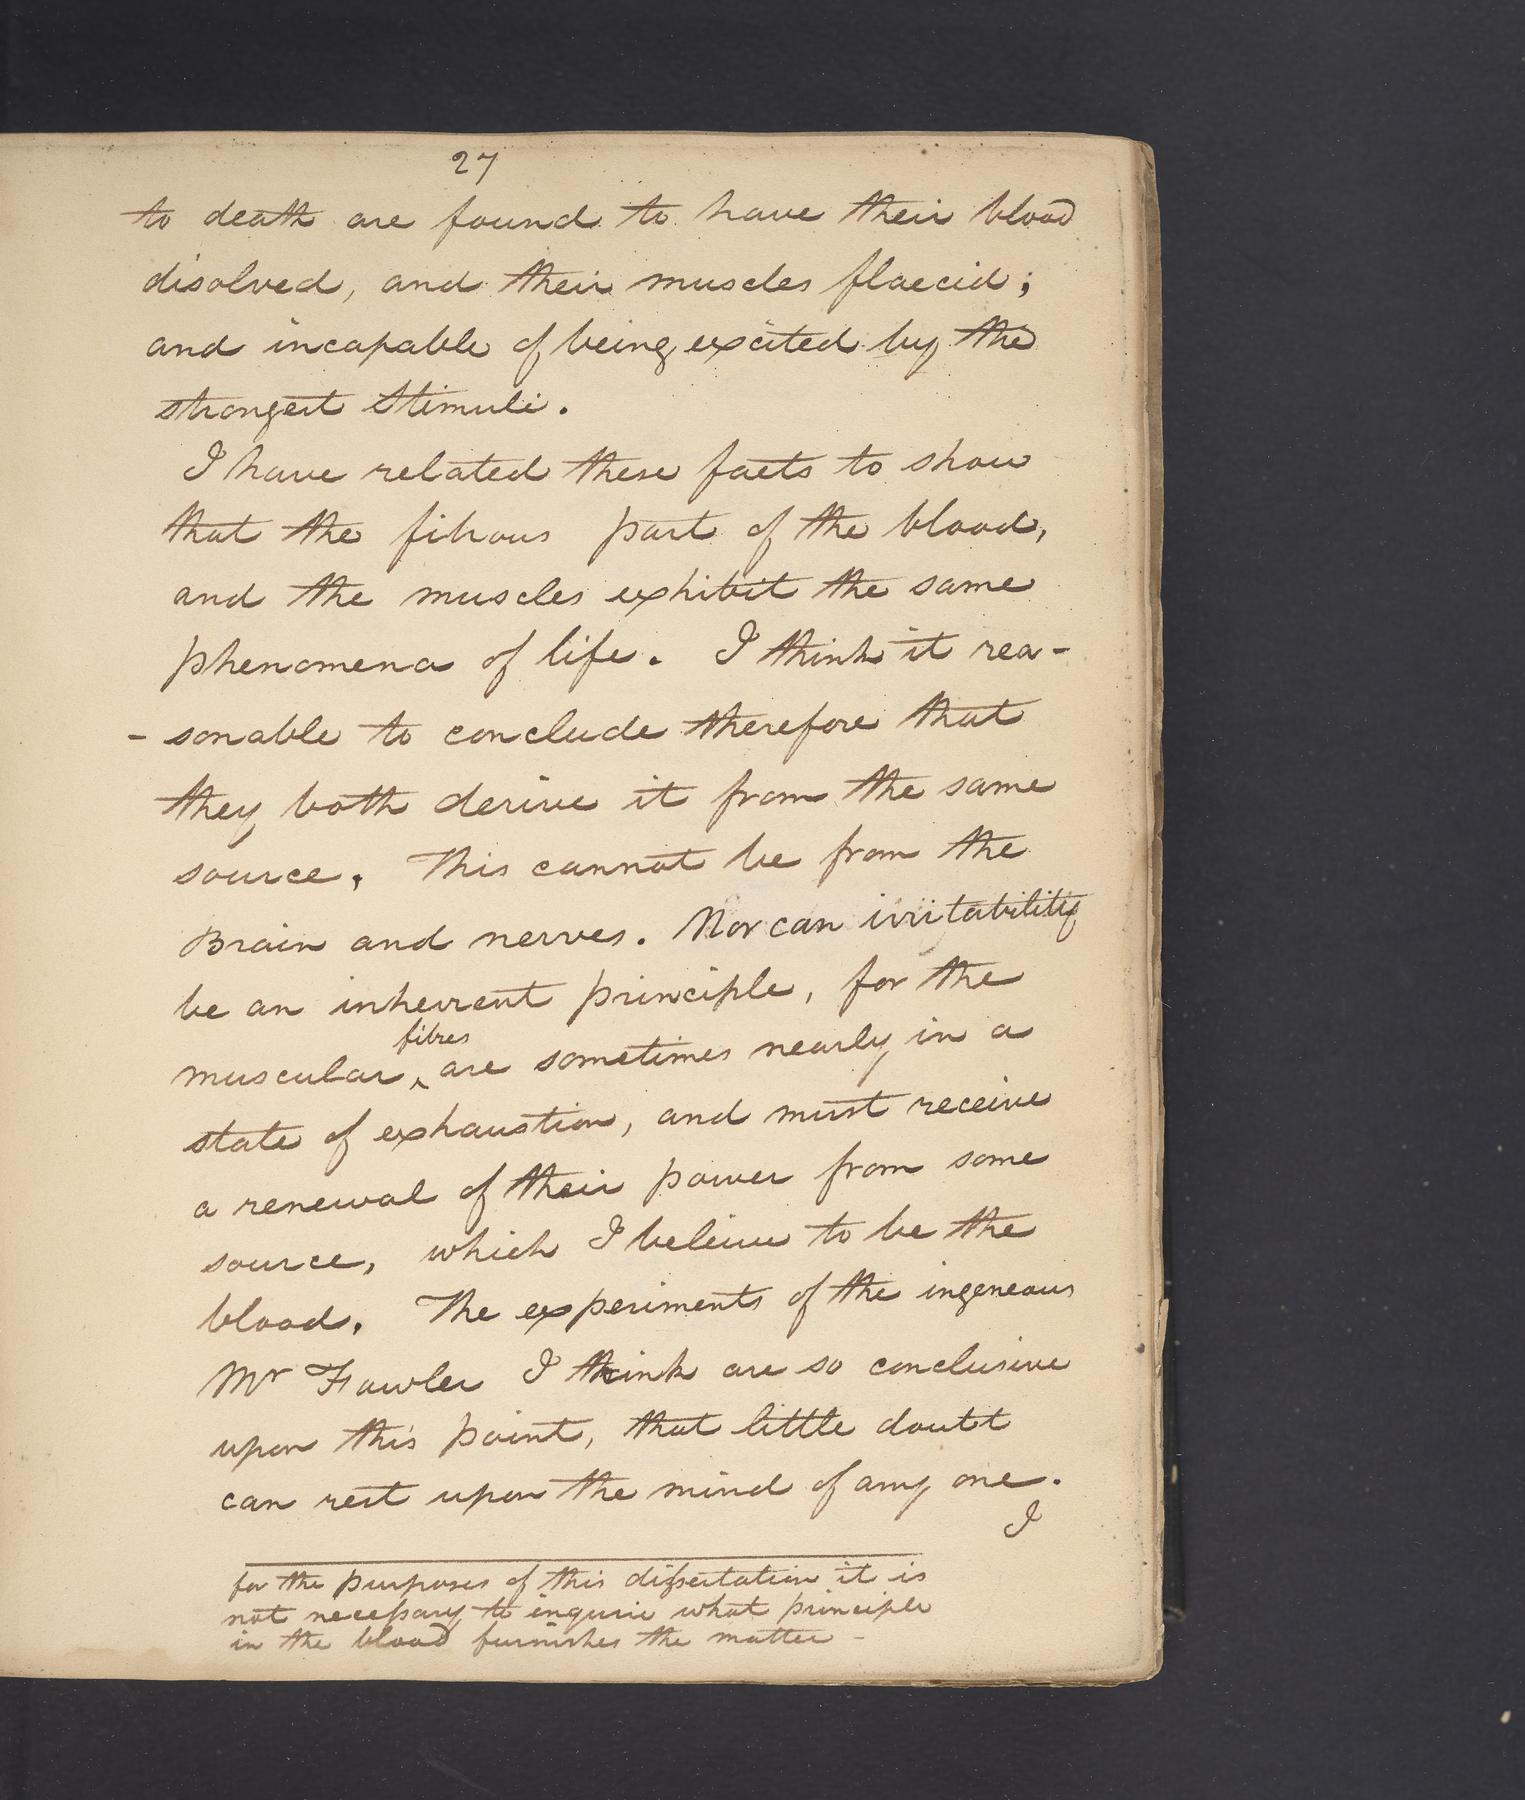 27
to death are found to have their blood
disolved, and their muscles flaccid;
and incapable of being excited by the
strongest stimuli.
I have related these facts to show
that the fibrous part of the blood,
and the muscles exhibit the same
phenomena of life. I think it rea-
- sonable to conclude therefore that
they both derive it from the same
source. This cannot be from the
Brain and nerves. Nor can irritability
be an inherrent principle, for the
fibres
muscular ‸ are sometimes nearly in a
state of exhaustion, and must receive
a renewal of their power from some
source, which I beleive to be the
blood. The experiments of the ingeneous
Mr Fowler I think are so conclusive
upon this point, that little doubt
can rest upon the mind of any one.
I
for the purposes of this dissertation it is
not necessary to inquire what principle
in the blood furnishes the matter -